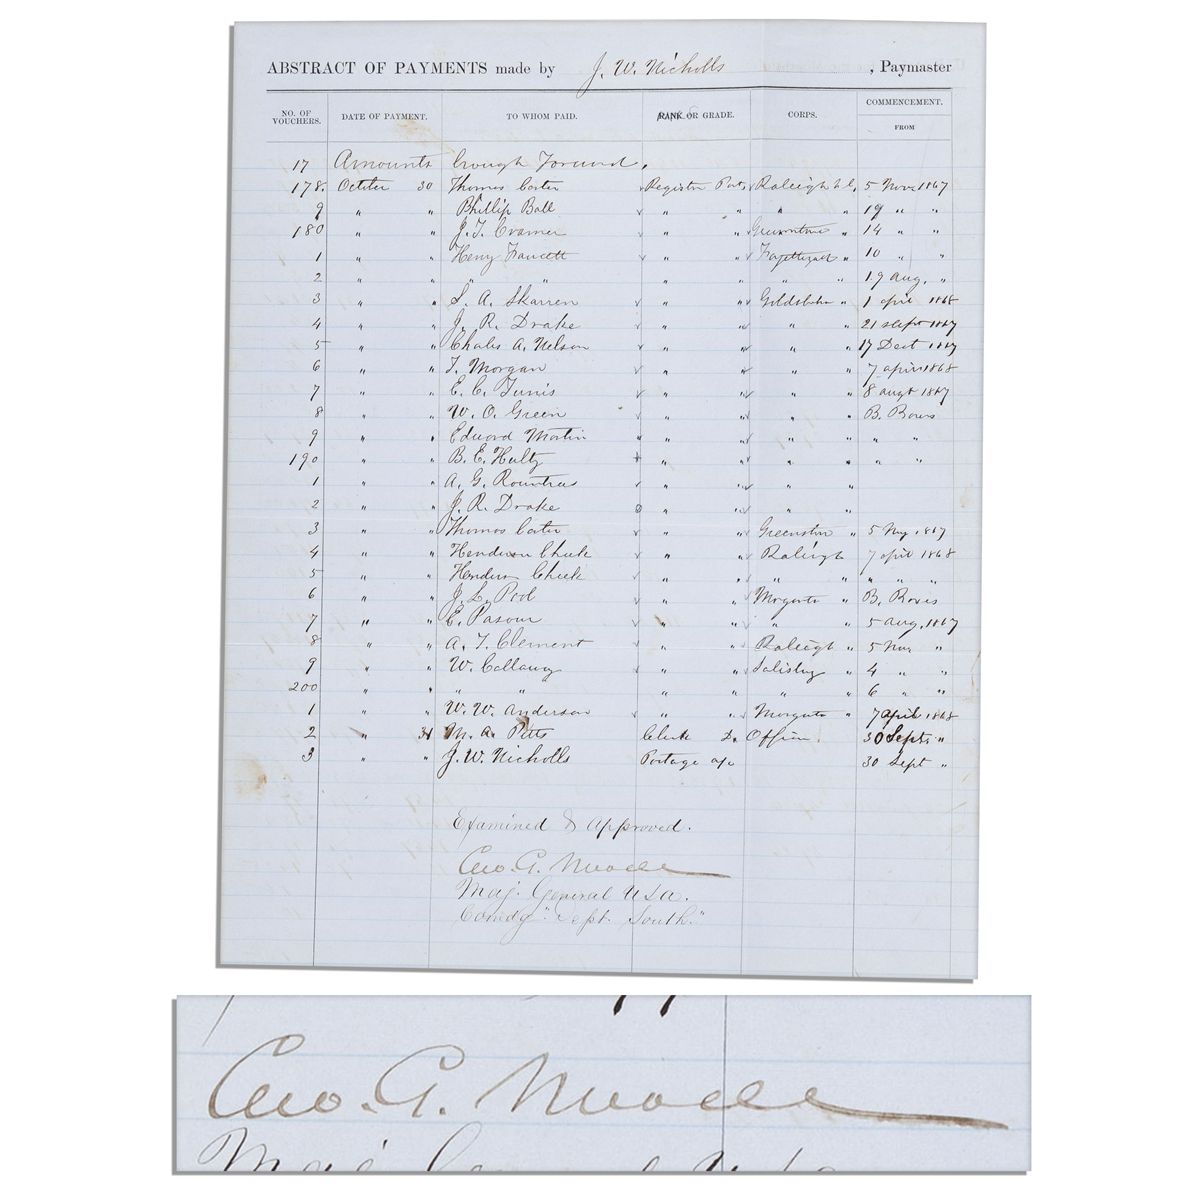 ABSTRACT OF PAYMENTS made by J. W. Nicholls , Paymaster
NO. OF VOUCHERS. DATE OF PAYMENT. TO WHOM PAID. RANK OR GRADE. CORPS. COMMENCEMENT.
FROM
17 Amounts brough Forward,
178. October 30 Thomas Carter Register Raleigh N.C. 5 1867
9 " " Phillip Ball " " " " 19 " "
180 " " J. T. Cramer " " " 14 " "
1 " " Henry Faucett " " " 10 " "
2 " " " " " " " " 19 Aug. "
3 " " S. A. Skarren " " Goldsboro " 1 April 1868
4 " " J. R. Drake " " " " 21 Sept 1867
5 " " Chales A. Nelson " " " " 17 1867
6 " " T. Morgan " " " " 7 April 1868
7 " " E. C. Tunis " " " " 8 Augt 1867
8 " " W. O. Green " " " " B.
9 " " Edward Martin " " " " " "
190 " " B. E. Hultz " " " " " "
1 " " A. G. Rountree " " " "
2 " " J. R. Drake " " "
3 " " Thomas Carter " " " 5 1867
4 " " Henderson Cheek " " Raleigh 7 April 1868
5 " " Cheek " " " " " " "
6 " " J. L. Pool " " " B.
7 " " E. Pasour " " " " 5 Aug. 1867
8 " " A. T. Clement " " Raleigh " 5 "
9 " " W. Callaway " " Salisbury " 4 " "
200 " " " " " " " " 6 " "
1 " " W. W. Anderson " " " 7 April 1868
2 " 31 M. A. Potts Clerk 30 Sept. "
3 " " J. W. Nicholls Postage a/c 30 Sept "
Examined & Approved.
Geo. G. Meade
Maj. General U.S.A.
Comdg "Dept. South."
Geo. G. Meade
Maj. General U.S.A.